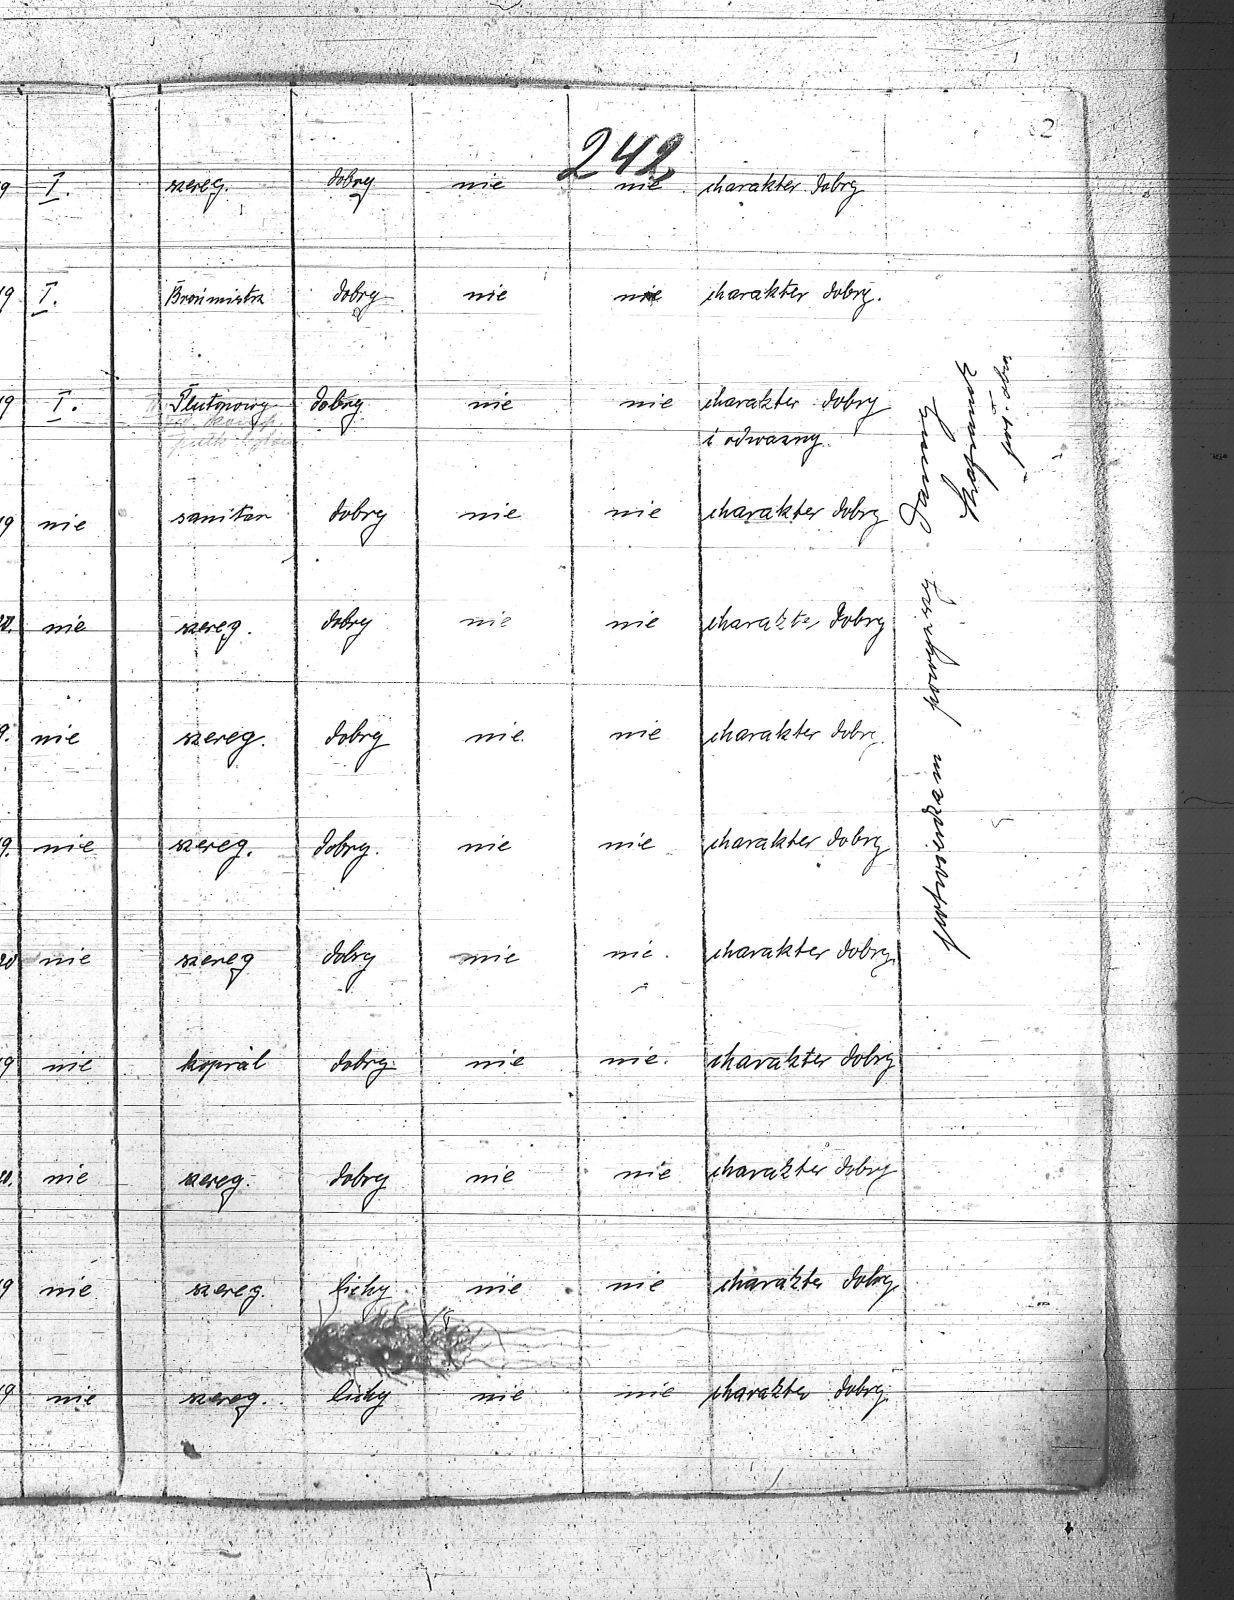 242
2
9 I. szereg. dobry nie nie charakter dobry
19 I. Brońmistrz dobry nie nie charakter dobry.
19 I. Plutonowy dobry nie nie charakter dobry
i odwazny.
19 nie sanitar dobry nie nie charakter dobry
nie szereg. dobry nie nie charakter dobry
9. nie szereg. dobry nie. nie charakter dobry.
9. nie szereg. dobry. nie nie charakter dobry
20 nie szereg dobry nie nie. charakter dobry.
19 nie kopral dobry nie nie. charakter dobry
nie szereg. dobry nie nie charakter dobry
19 nie szereg. lichy nie nie charakter dobry
19 nie szereg. lichy nie nie charakter dobry.
potwierdzam powyższe